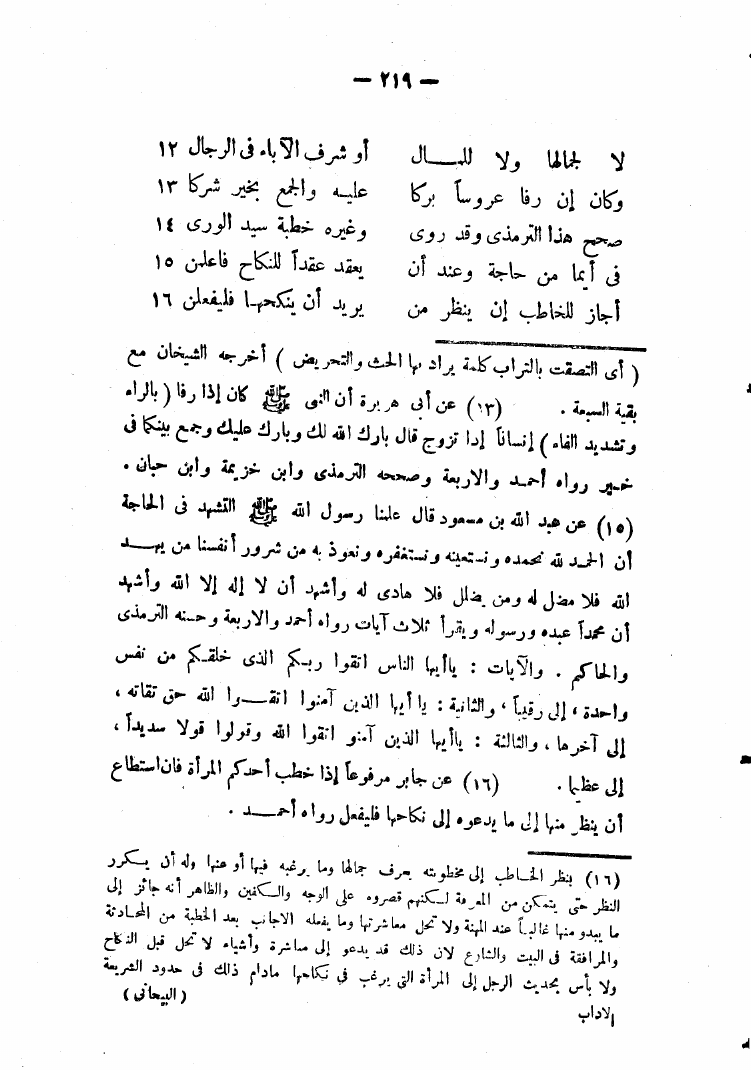 — ٢١٩ —
لا لجمالها ولا للمـــال أو شرف الآباء فى الرجال ١٢
وكان إن رفا عروساً بركا عليه والجمع بخير شركا ١٣
صحح هذا الترمذى وقد روى وغيره خطبة سيد الورى ١٤
فى أيما من حاجة وعند أن يعقد عقداً للنكاح فاعلمن ١٥
أجاز للخاطب إن ينظر من يريد أن ينكحهـا فليفعلن ١٦
( أى التصقت بالتراب كلمة يراد بها الحث والتحريض ) أخرجه الشيخان مع
بقية السبعة . (١٣) عن أبى هريرة أن النبى ﷺ كان إذا رفا ( بالراء
وتشديد الفاء ) إنساناً إدا تزوج قال بارك الله لك وبارك عليك وجمع بينكما فى
خـير رواه أحمـد والاربعة وصححه الترمذى وابن خزيمة وابن حبان .
(١٥) عن عبد الله بن مسعود قال علمنا رسول الله ﷺ التشهد فى الحاجة
أن الحمـد لله نحمده ونستعينه ونستغفره ونعوذ به من شرور أنفسنا من يهـــد
الله فلا مضل له ومن يضلل فلا هادى له وأشهد أن لا إله إلا الله وأشهد
أن محمداً عبده ورسوله ويقرأ ثلاث آيات رواه أحمد والاربعة وحسنه الترمذى
والحاكم . والآيات : ياأيها الناس اتقوا ربـكم الذى خلقـكم من نفس
واحدة ، إلى رقيباً ، والثانية : يا أيها الذين آمنوا اتقـــوا الله حق تقاته ،
إلى آخرها ، والثالثة : ياأيها الذين آمنو اتقوا الله وقولوا قولا سديداً ،
إلى عظيما . (١٦) عن جابر مرفوعاً إذا خطب أحدكم المرأة فان استطاع
أن ينظر منها إلى ما يدعوه إلى نكاحها فليفعل رواه أحمـــد .
(١٦) ينظر الخـاطب إلى مخطوبته يعرف جمالها وما يرغبه فيها أو عنها وله أن يـكرر
النظر حتى يتمكن من المعرفة لـكنهم قصروه على الوجه والـكفين والظاهر أنه جائز إلى
ما يبدو منها غالبـاً عند المهنة ولا تحل معاشرتها وما يفعله الاجانب بعد الخطبة من المحادثة
والمرافقة فى البيت والشارع لان ذلك قد يدعو إلى معاشرة وأشياء لا تحل قبل النكاح
ولا بأس بحديث الرجل إلى المرأة التى يرغب فى نكاحها مادام ذلك فى حدود الشريعة
الاداب ( البيحانى )